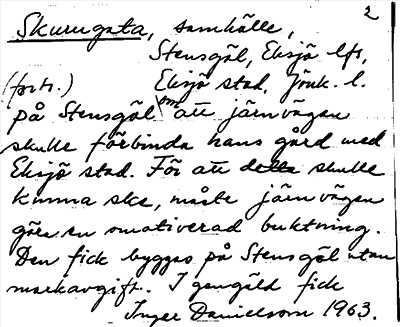 2
Skurugata, samhälle,
Stensgöl, Eksjö lfs,
(forts.) Eksjö stad, Jönk. l.
på Stensgöl om att järnvägen
skulle förbinda hans gård med
Eksjö stad. För att detta skulle
kunna ske, måste järnvägen
göra en omotiverad buktning.
Den fick byggas på Stensgöl utan
markavgift. I gengäld fick
Inger Danielsson 1963.